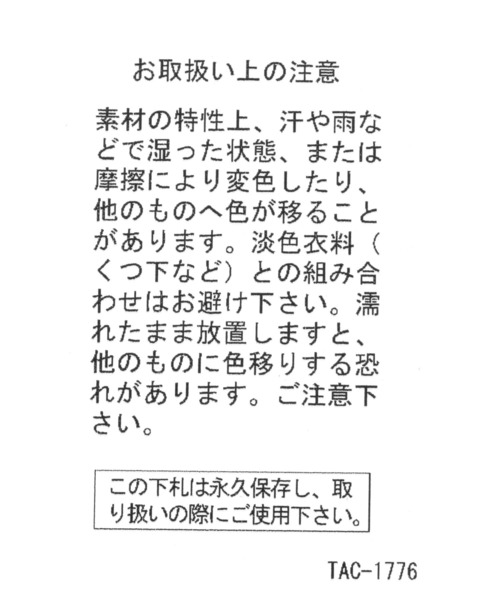 お取扱い上の注意
素材の特性上、汗や雨な
どで湿った状態、または
摩擦により変色したり、
他のものへ色が移ること
があります。淡色衣料（
くつ下など）との組み合
わせはお避け下さい。濡
れたまま放置しますと、
他のものに色移りする恐
れがあります。ご注意下
さい。
この下札は永久保存し、取
り扱いの際にご使用下さい。
TAC-1776